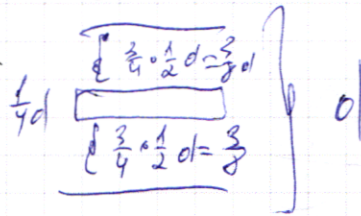 { 3/4 · 1/2 d = 3/8 d
1/4 d } d
{ 3/4 · 1/2 d = 3/8